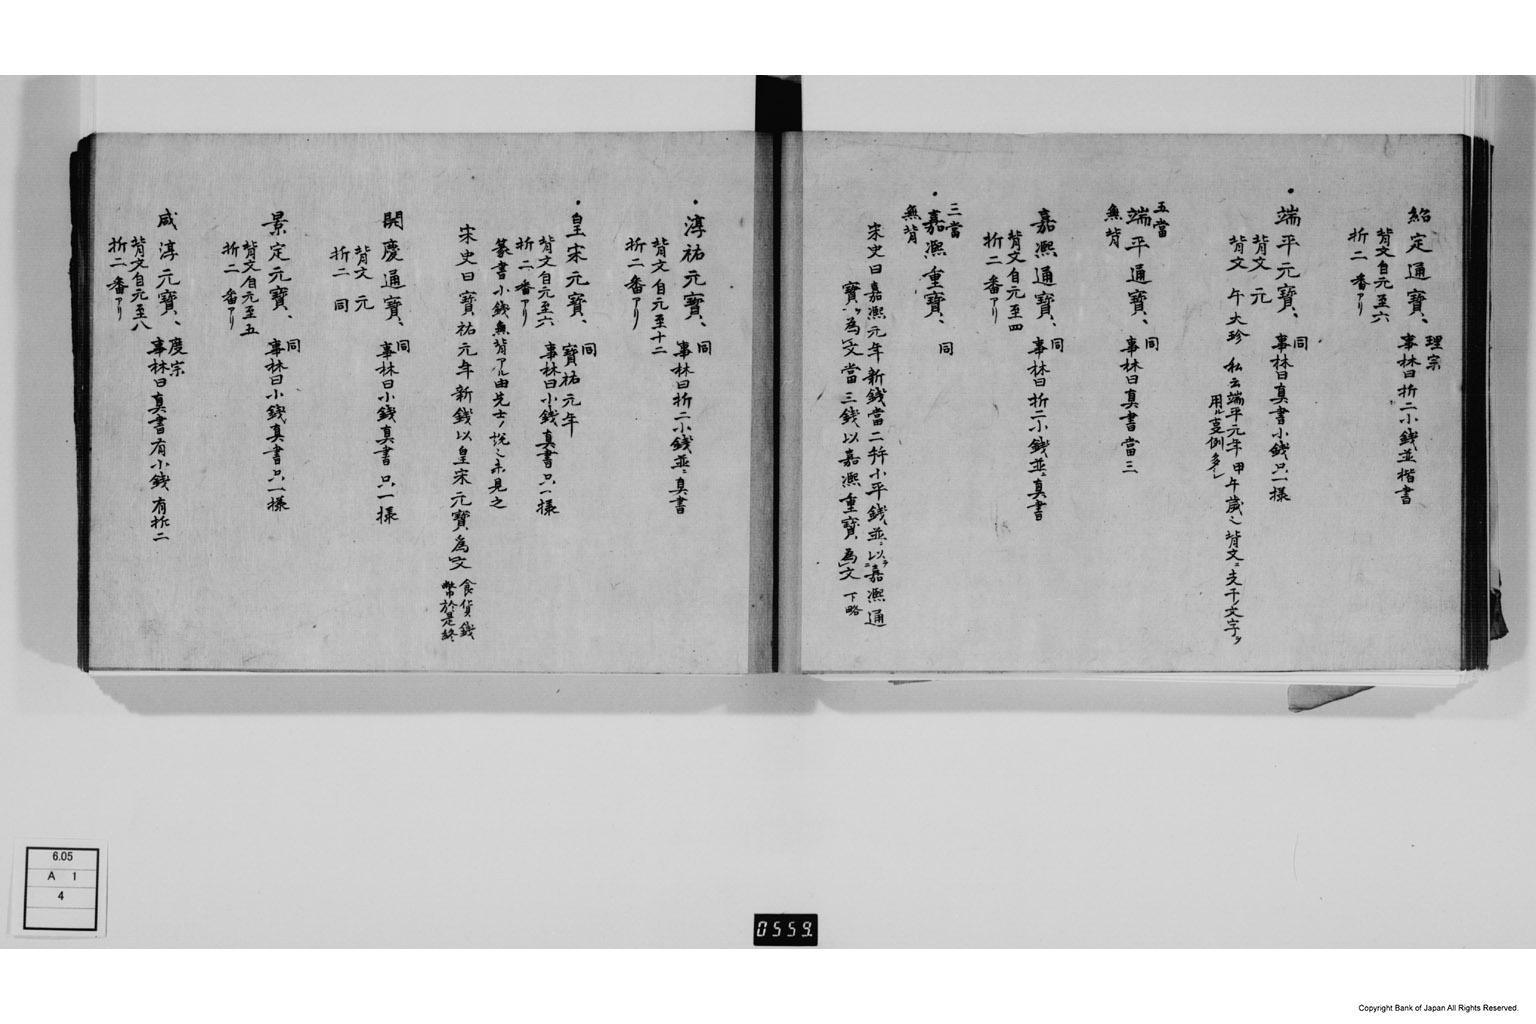 紹定通寳、
理宗
事林曰折二小銭並楷書
背文自元至六
折二番アリ
端平元寳、
同
事林曰真書小銭只一様
背文 元
背文 午 大珍 私云端平元年甲午歳
背文ニ支干ノ文字ヲ
用ル
五當
端平通寳、
無背
同
事林曰真書當三
嘉凞通寳、
同
事林曰折二小銭並ニ真書
背文自元至四
折二番アリ
三當
嘉凞重寳、
無背
同
宋史曰嘉凞元年新銭當二幷小平銭並ニ以ヲ嘉凞通
寳ヲ為文當三銭以嘉凞重寳為文 下略
淳祐元寳、
同
事林曰折二小銭並ニ真書
背文自元至十二
折二番アリ
皇宋元寳、
同
寳祐元年
事林曰小銭真書只一様
背文自元至六
折二番アリ
篆書小銭無背アル由先士ノ説 未見之
宋史曰寳祐元年新銭以皇宋元寳為文
食貨銭
幣於是終
開慶通寳、
同
事林曰小銭真書只一様
背文 元
折二 同
景定元寳、
同
事林曰小銭真書只一様
背文自元至五
折二番アリ
咸淳元寳、
度宗
事林曰真書有小銭有折二
背文自元至八
折二番アリ
6.05
A 1
4
0559.
Copyright Bank of Japan All Rights Reserved.